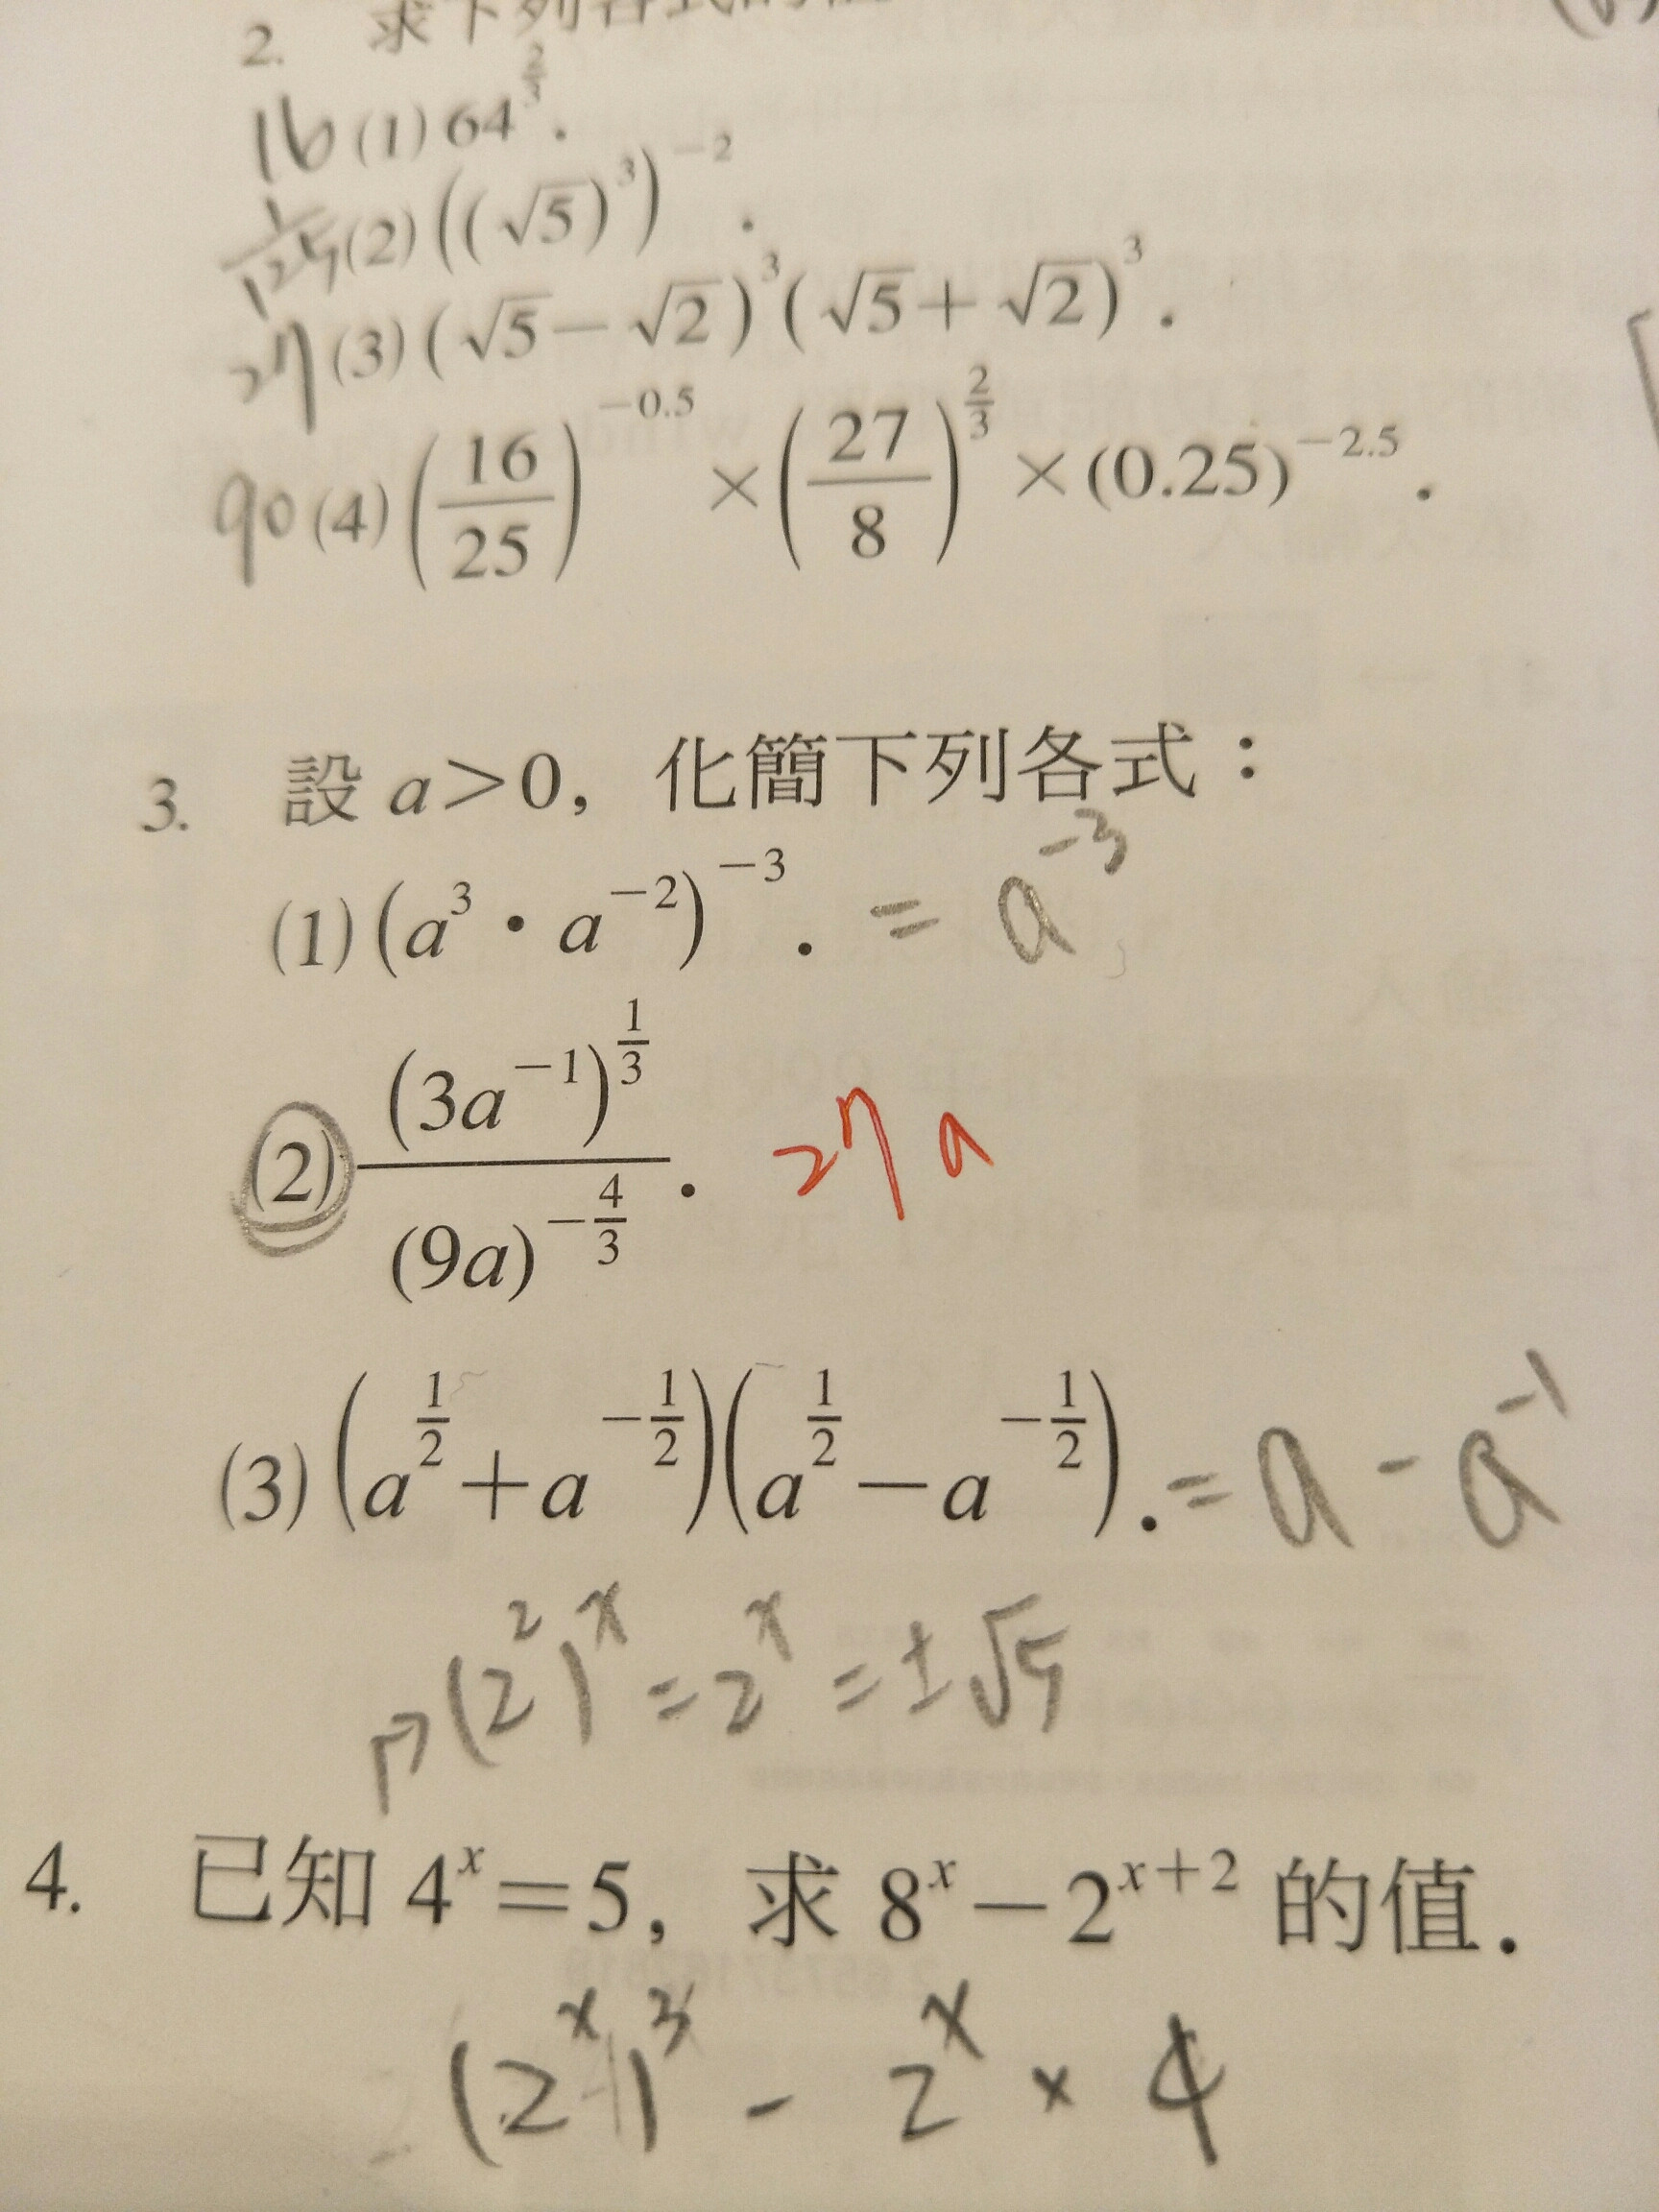 2. 求下列各式的值
16 (1) 64^{\frac{2}{3}}.
\frac{1}{125} (2) ((\sqrt{5})^3)^{-2}.
27 (3) (\sqrt{5}-\sqrt{2})^3(\sqrt{5}+\sqrt{2})^3.
90 (4) (\frac{16}{25})^{-0.5}×(\frac{27}{8})^{\frac{2}{3}}×(0.25)^{-2.5}.
3. 設 a>0, 化簡下列各式：
(1) (a^3·a^{-2})^{-3}. = a^{-3}
(2) \frac{(3a^{-1})^{\frac{1}{3}}}{(9a)^{-\frac{4}{3}}}. 27a
(3) (a^{\frac{1}{2}}+a^{-\frac{1}{2}})(a^{\frac{1}{2}}-a^{-\frac{1}{2}}). = a - a^{-1}
(2^2)^x = 2^x = ±\sqrt{5}
4. 已知 4^x=5, 求 8^x-2^{x+2} 的值.
(2^x)^3 - 2^x × 4